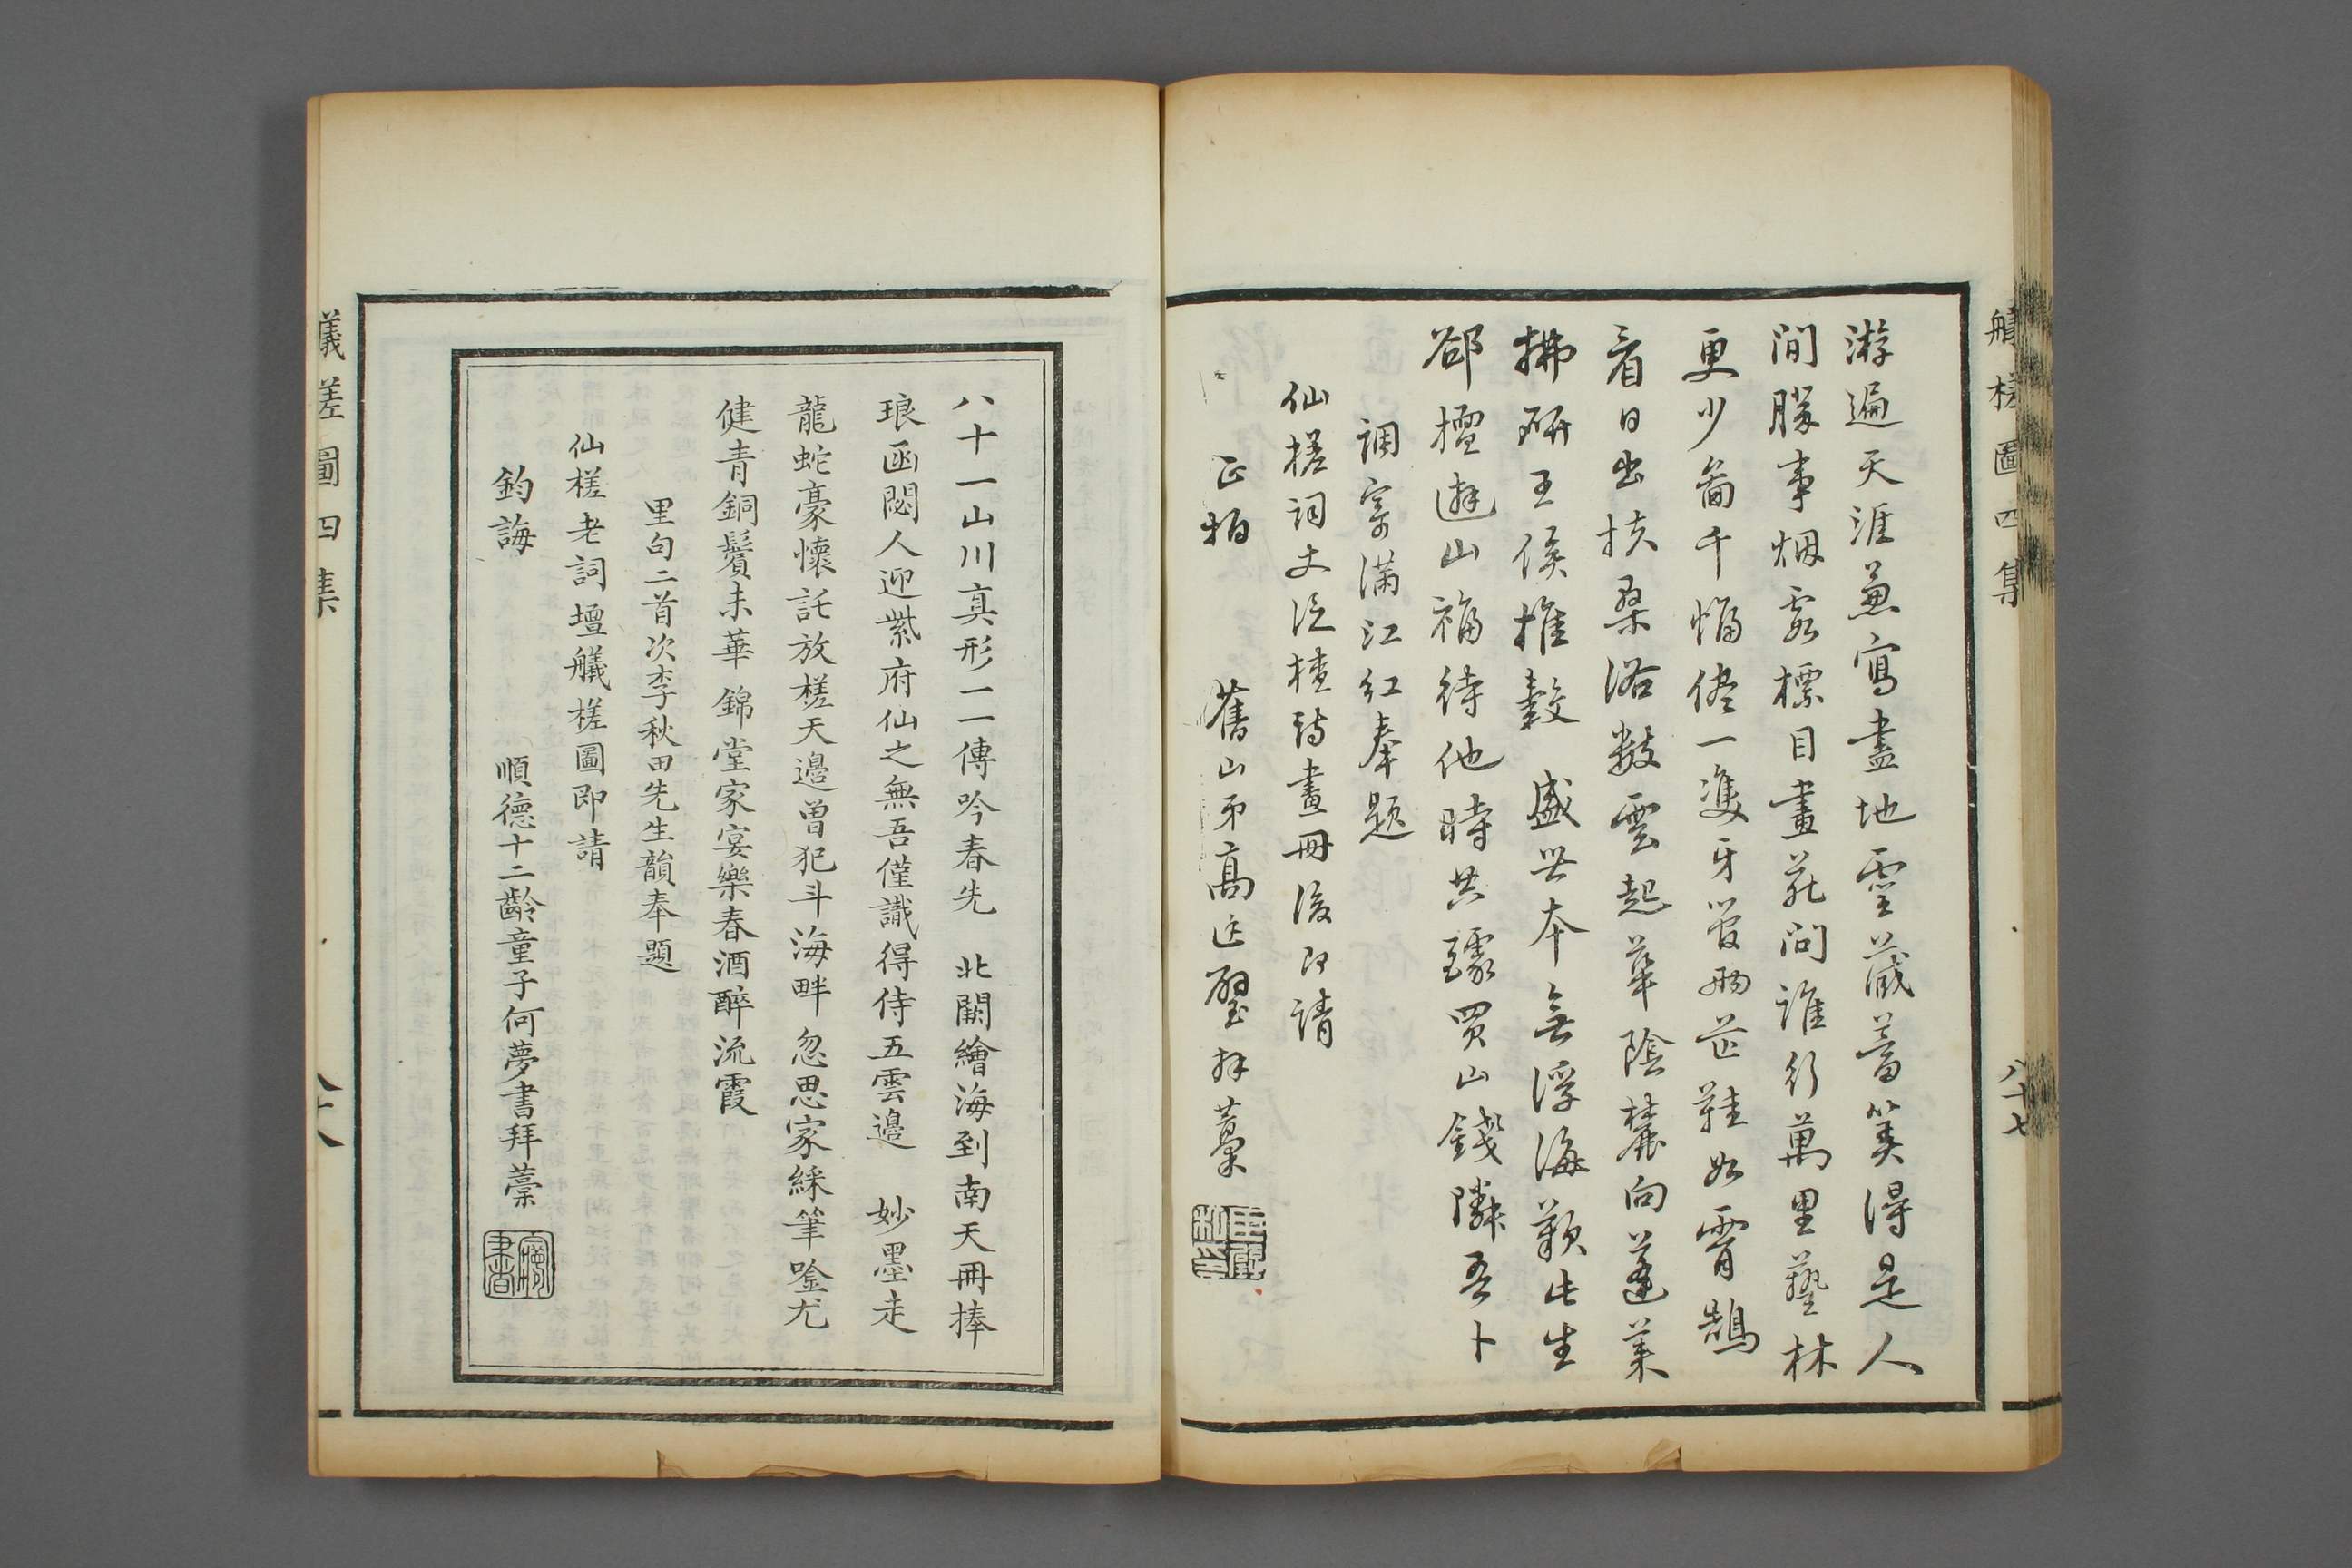 艤槎圖四集
八十七
游遍天涯兼寫盡地靈蔵蓄筭得是人
間勝事烟霞標目畫苑問誰行萬里藝林
更少啚千幅倦一雙牙管兩芒鞋如霄鵠
看日出扶桑浴數雲起華陰麓向蓬萊
拂研王侯推轂 盛世本無浮海歎此生
卻擅遊山福待他時共醵買山錢隣吾卜
調寄滿江紅奉題
仙槎詞丈泛槎詩畫冊後即請
正拍 舊山弟高廷 拜藁
八十一山川真形一一傳吟春先 北闕繪海到南天冊捧
琅函閟人迎紫府仙之無吾僅識得侍五雲邉 妙墨走
龍蛇豪懷託放槎天邉曽犯斗海畔忽思家綵筆唫尤
健青銅鬢未華 錦堂家宴樂春酒醉流霞
里句二首次李秋田先生韻奉題
仙槎老詞壇艤槎圖即請
鈞誨 順德十二齡童子何夢書拜藁
夢書
艤槎圖四集
八十八